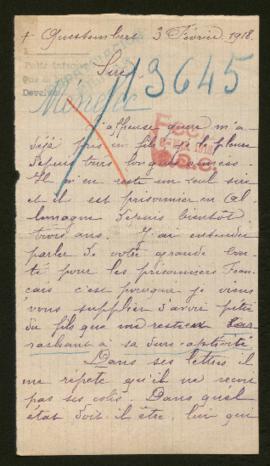 + Questembert 3 Février 1918.
Sire
13645
L'affreuse guerre m'a
déjà pris un fils, je le pleure
depuis trois longues années.
Il m'en reste un seul sire
et il est prisonnier en Al
lemagne depuis bientôt
trois ans. J'ai entendu
parler de votre grande bon
té pour les prisonniers Fran
çais c'est pourquoi je viens
vous supplier d'avoir pitié
du fils qui me reste en
l'arrachant à sa dure captivité
Dans ses lettres il
me répète qu'il ne reçoit
pas ses colis. Dans quel
état doit-il être, lui qui